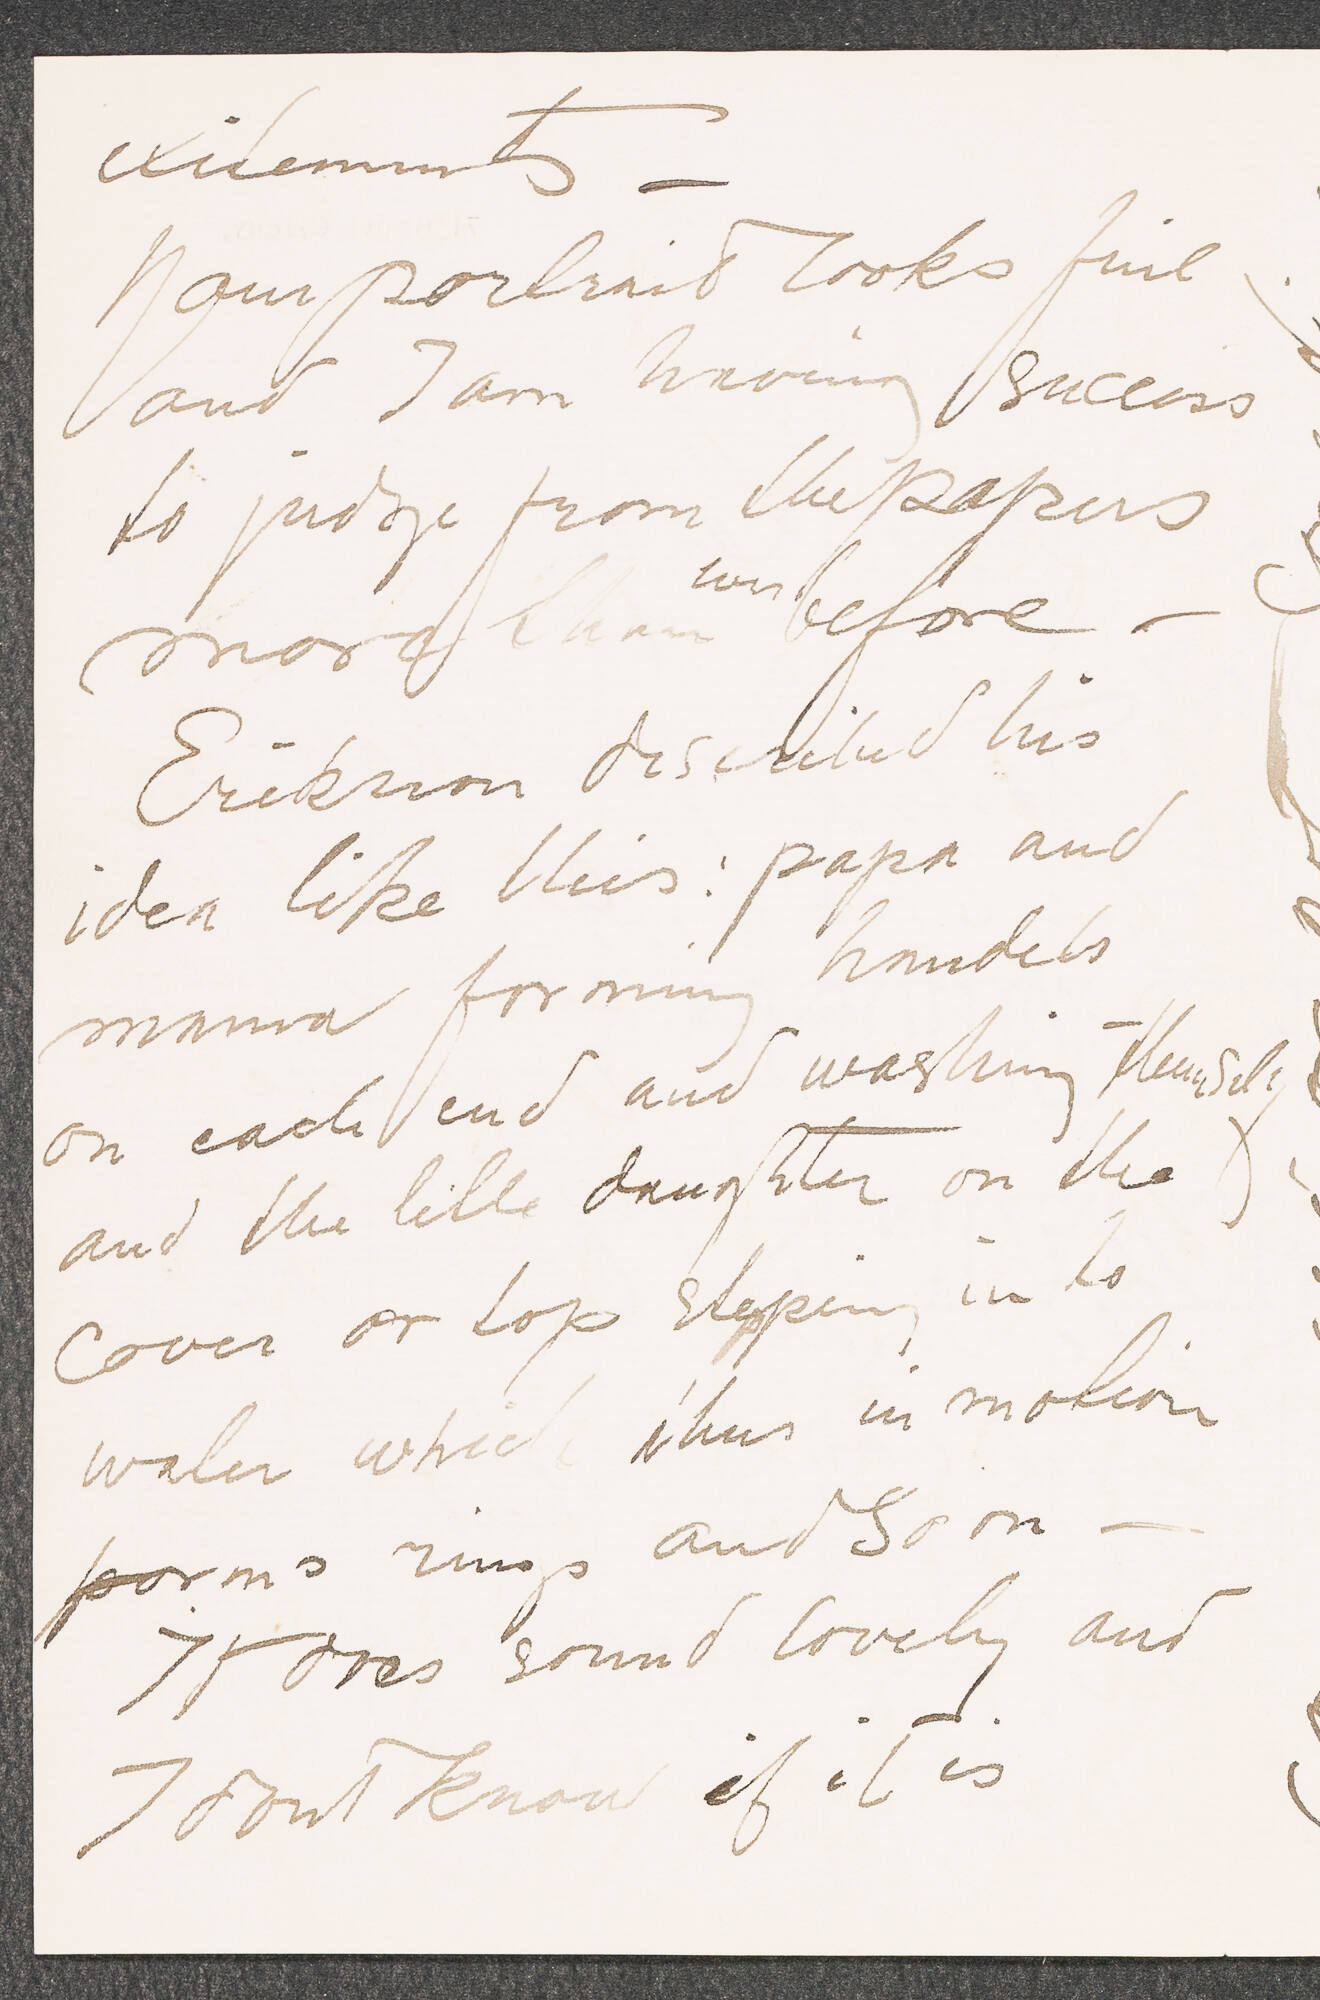 exitements —
Your portrait looks fine
and I am having success
to judge from the papers
more than ever before —
Erikson described his
idea like this: papa and
mama forming handels
on each end and washing themsely
and the little daughter on the
cover or top stepping in to
water which thus in motion
forms rings and so on —
It does sound lovely and
I dont know if it is